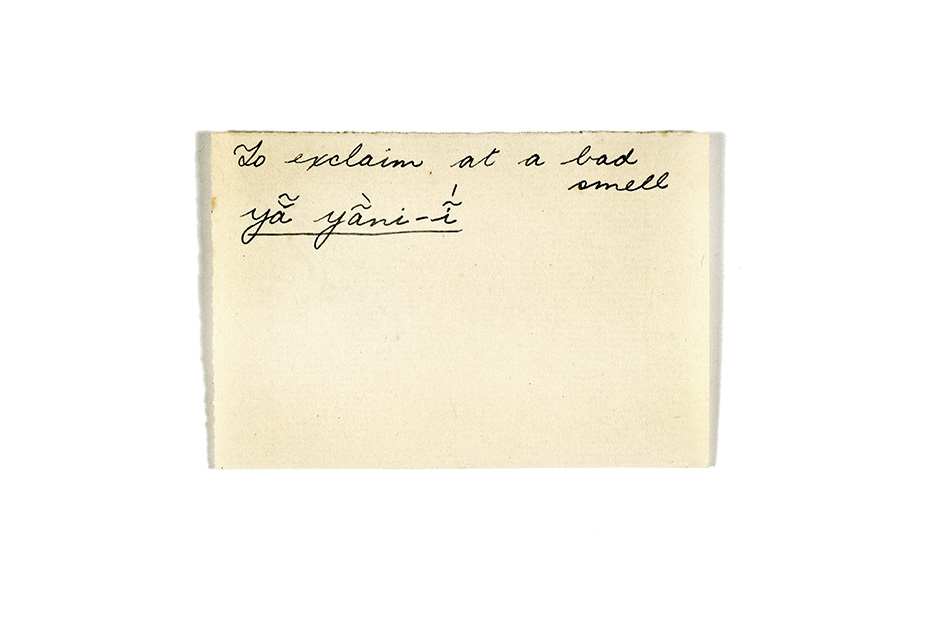 To exclaim at a bad
smell
yẵ yã̀ni-ĩ́